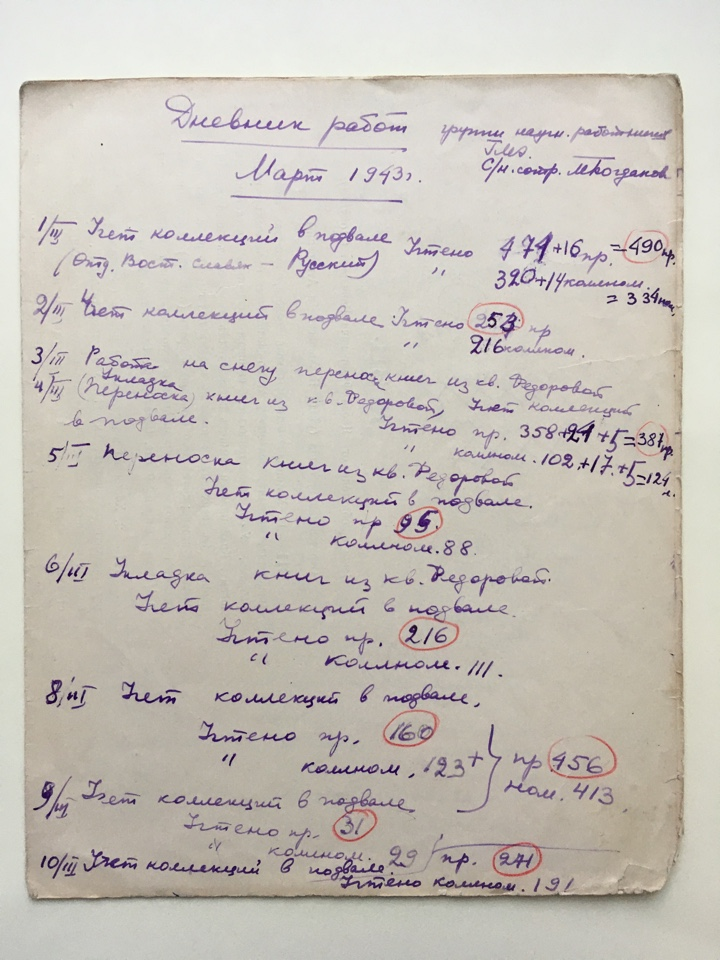 Дневник работ группы научн. работников
ГМЭ.
Март 1943г. С/н. сотр. М Богданов
1/III Учет коллекций в подвале Учтено 474+16 пр. = 490 пр.
(Отд. Вост. славян – Русский) " 320+14 колл ном.
= 334 ном.
2/III Учет коллекций в подвале Учтено 254 пр
" 216 колл ном.
3/III Работа на снегу, перенос книг из кв. Федоровой
4/III (Переноска) Укладка книг из кв. Федоровой, Учет коллекций
в подвале. Учтено пр. 358+24+5=387 пр.
" коллном. 102+17+5=124 н.
5/III Переноска книг из кв. Федоровой
Учет коллекций в подвале.
Учтено пр 95.
" коллном. 88.
6/III Укладка книг из кв. Федоровой.
Учет коллекций в подвале.
Учтено пр. 216
" коллном. 111.
8/III Учет коллекций в подвале.
Учтено пр. 160
" коллном. 123 + } пр 456
ном. 413
9/III Учет коллекций в подвале
Учтено пр. 31
" коллном. 29 пр. 241
10/III Учет коллекций в подвале
Учтено коллном. 191